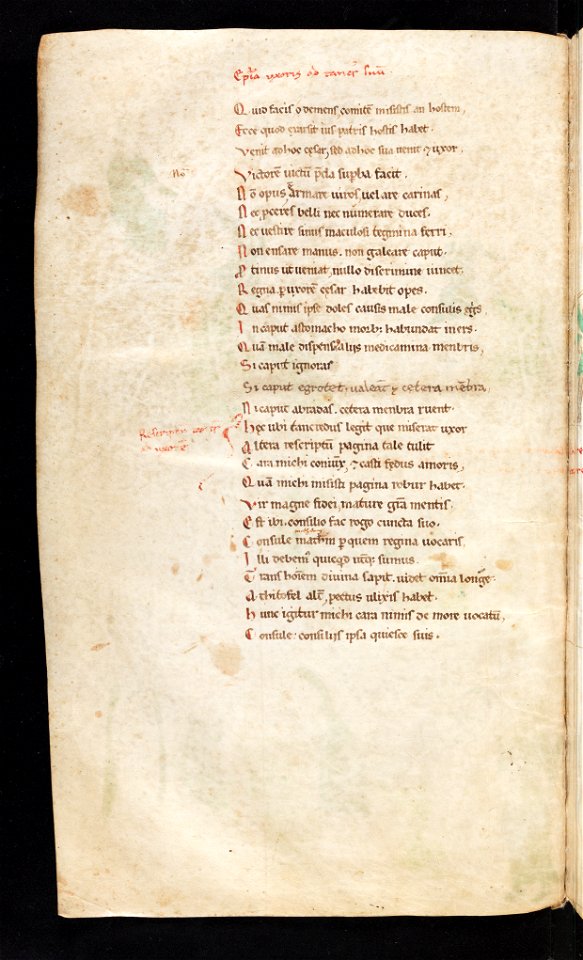 Ep̄la uxoris ad tancr̄ suū
Quid facis o demens comitē misistis an hostem,
Ecce quod euasit ius patris hostis habet.
Venit adhoc cęsar, sed adhoc sua uenit & uxor,
Nō
Victorē uictū p̄da supba facit.
Nō opus armare uiros, uel are carinas,
Nec pceres belli nec numerare duces.
Nec uestire sinus maculosi tegmina ferri,
Non ensare manus. non galeare caput.
Ptinus ut ueniat, nullo discrimine uincet,
Regna p uxorē cęsar habebit opes.
Quas nimis ipse doles causis male consulis egs̄,
In caput astomacho morb; habundat iners.
Quā male dispensatis medicamina menbris,
Si caput ignoras
Si caput egrotet, ualeāt & cetera mēbra,
Ni caput abradas. cetera menbra ruent.
Rescriptū
ad uxorē
Hęc ubi tancredus legit que miserat uxor
Altera rescriptū pagina tale tulit
Cara michi coniūx, & casti fedus amoris,
Quā michi misisti pagina robur habet.
Vir magne fidei, mature grā mentis.
Est ibi. consilio fac rogo cuncta suo.
Consule math̄m p quem regina uocaris
Illi debem᾽ quicqd utq; sumus.
Trans hoīem diuina sapit. uidet om̄ia longe.
Achitofel alt̄, pectus ulixis habet.
Hunc igitur michi cara nimis de more uocatū,
Consule: consiliis ipsa quiesce suis.